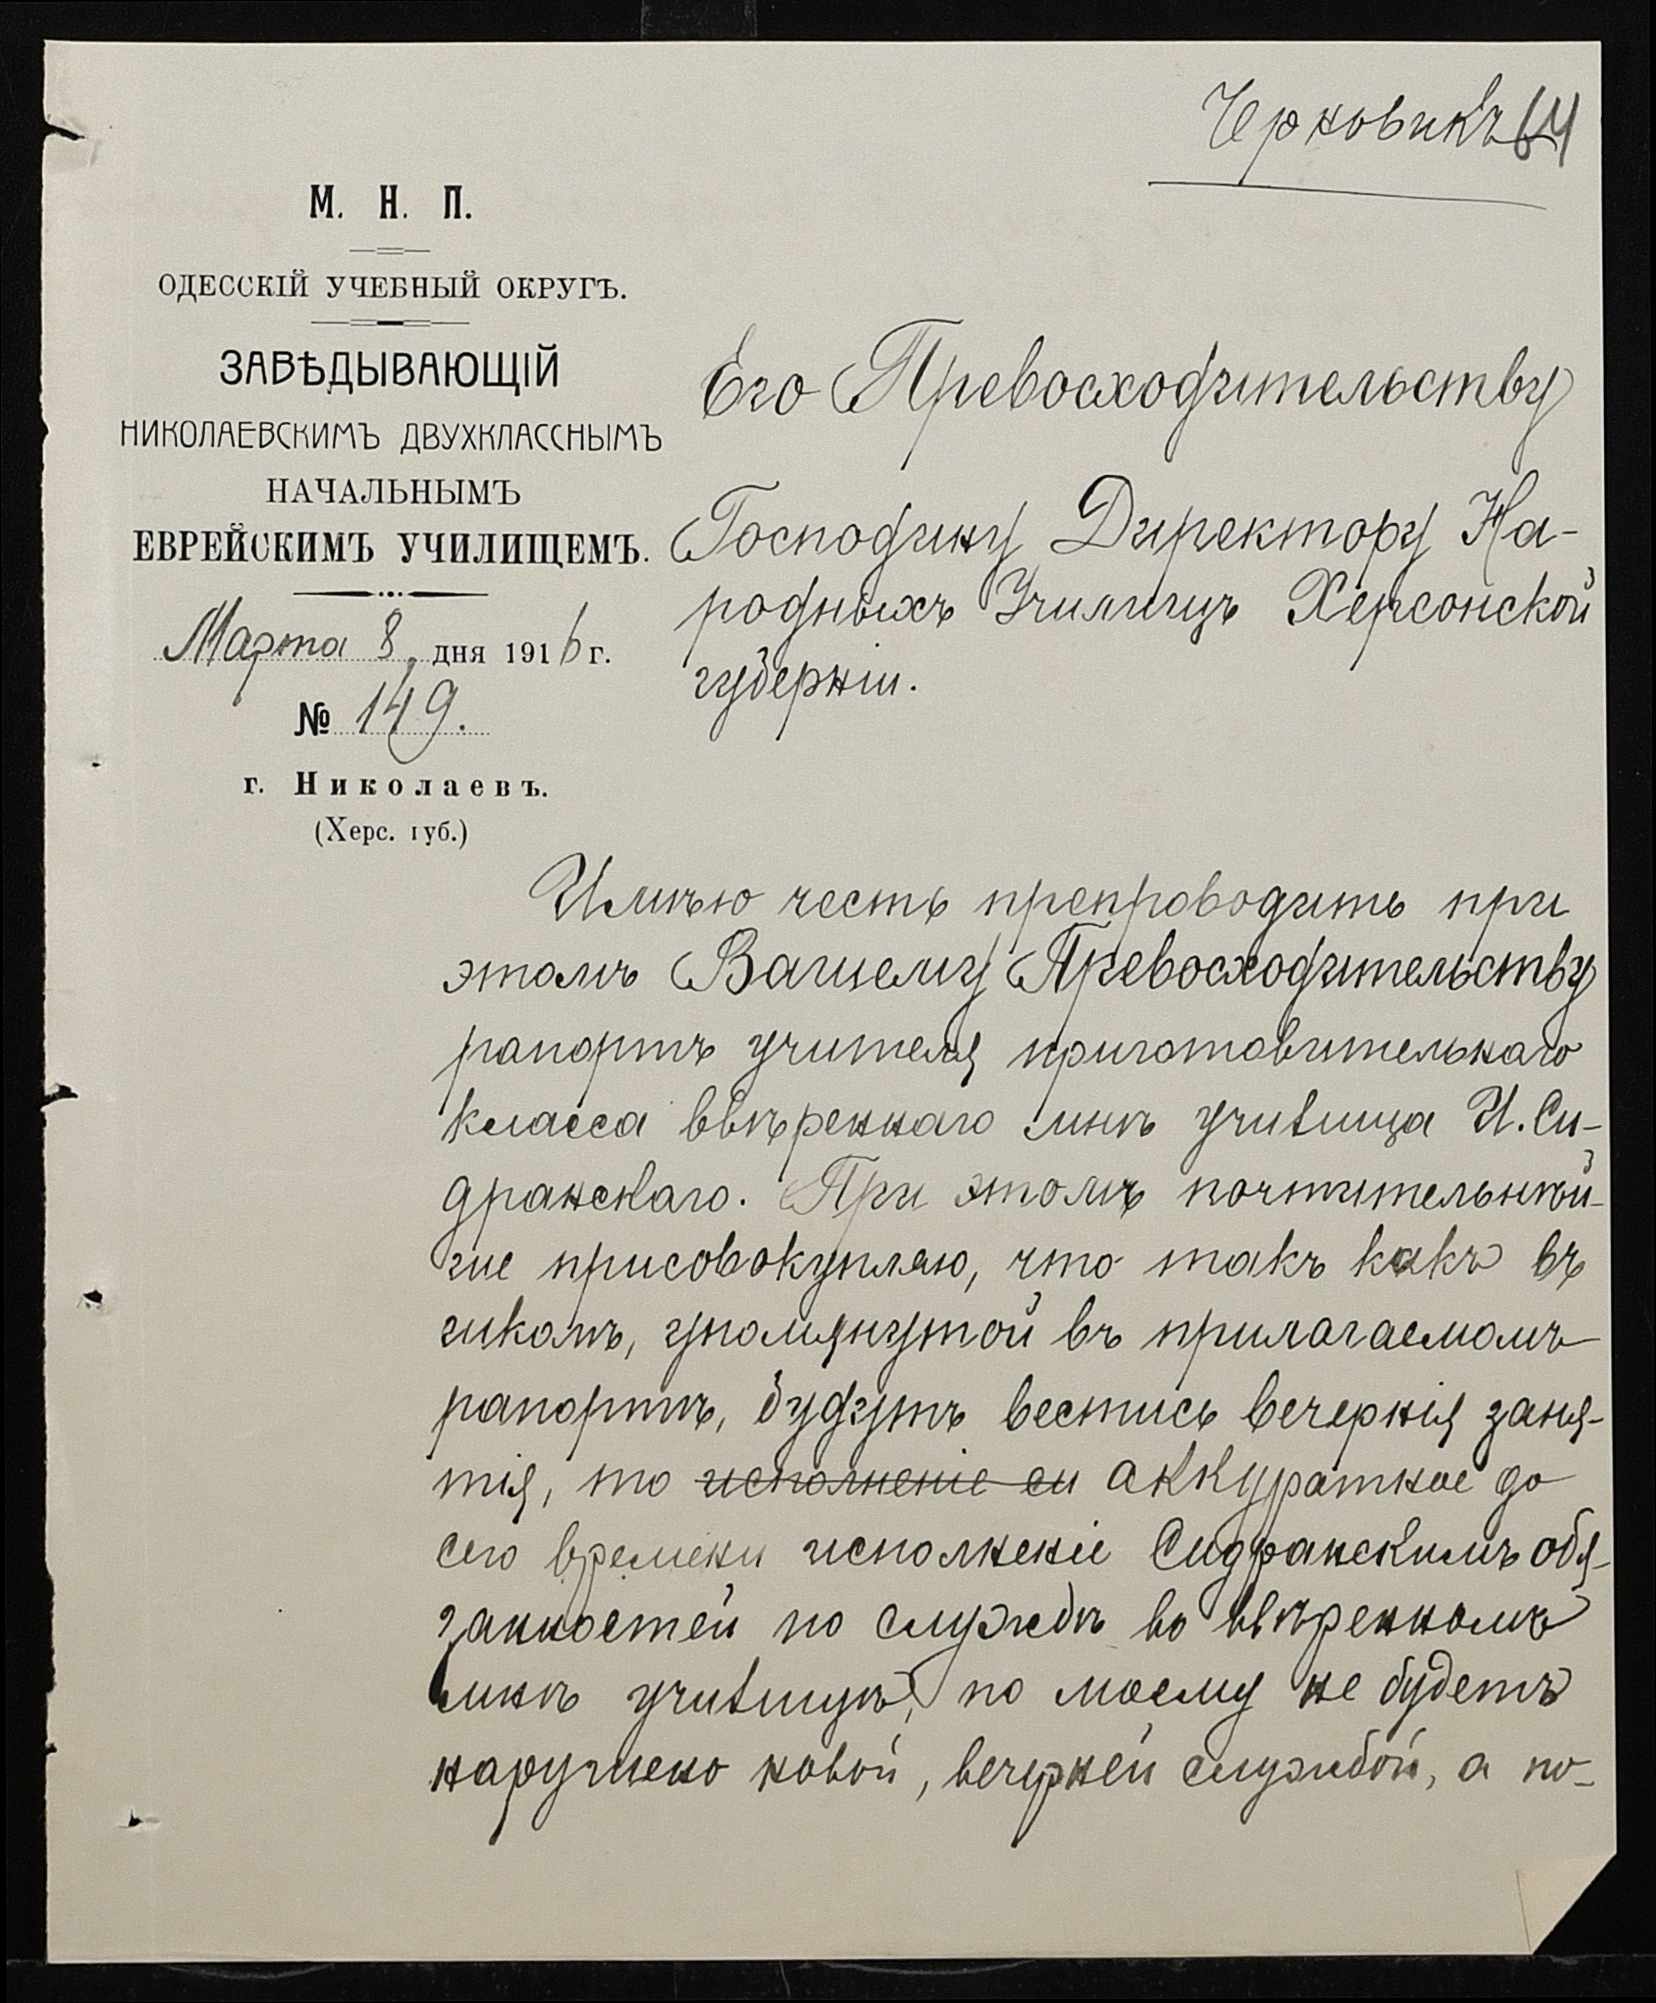 Черновикъ 64
М. Н. П.
ОДЕССКІЙ УЧЕБНЫЙ ОКРУГЪ.
ЗАВѢДЫВАЮЩІЙ
НИКОЛАЕВСКИМЪ ДВУХКЛАССНЫМЪ
НАЧАЛЬНЫМЪ
ЕВРЕЙСКИМЪ УЧИЛИЩЕМЪ.
Марта 8, дня 1916 г.
№ 149.
г. Николаевъ.
(Херс. губ.)
Его Превосходительству
Господину Директору На-
родныхъ Училищъ Херсонской
губерніи.
Имѣю честь препроводить при
этомъ Вашему Превосходительству
рапортъ учителя приготовительнаго
класса ввѣреннаго мнѣ училища И. Си-
дранскаго. При этомъ почтительнѣй-
ше присовокупляю, что такъ какъ въ
школѣ, упомянутой въ прилагаемомъ
рапортѣ, будутъ вестись вечернія заня-
тія, то исполненіе си аккуратное до
сего времени исполненіе Сидранскимъ обя-
занностей по службѣ во ввѣренномъ
мнѣ училищѣ, по моему не будетъ
нарушено новой, вечерней службой, а по-